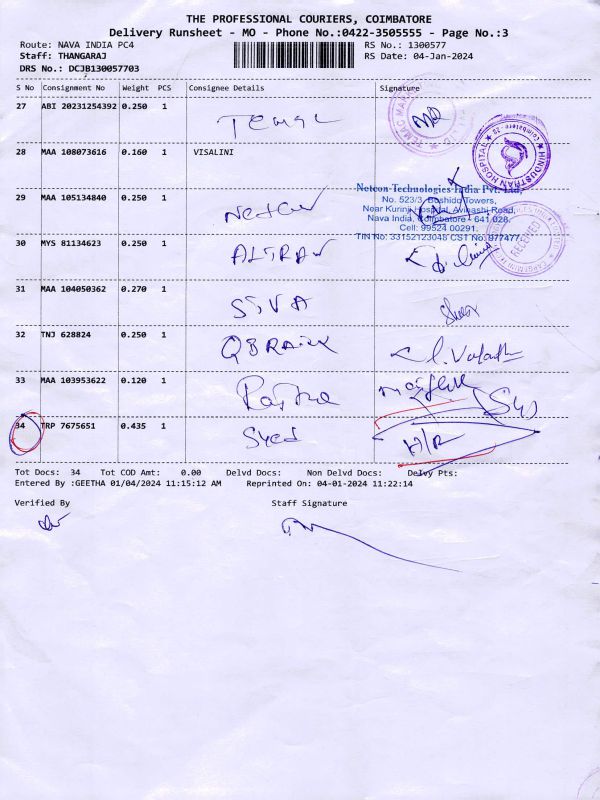 THE PROFESSIONAL COURIERS, COIMBATORE
Delivery Runsheet - MO - Phone No.:0422-3505555 - Page No.:3
Route: NAVA INDIA PC4 RS No.: 1300577
Staff: THANGARAJ RS Date: 04-Jan-2024
DRS No.: DCJB130057703
S No Consignment No Weight PCS Consignee Details Signature
27 ABI 20231254392 0.250 1 TEMAC
HINDUSTHAN HOSPITAL
28 MAA 108073616 0.160 1 VISALINI
Netcon Technologies India Pvt. Ltd.,
No. 523/3, Boshido Towers,
Near Kurinji Hospital, Avinashi Road,
Nava India, Coimbatore - 641 028.
Cell: 99524 00291.
TIN No: 33152123048 CST No: 977477
29 MAA 105134840 0.250 1 Netcon
30 MYS 81134623 0.250 1 ALTRAN
RECEIVED
31 MAA 104050362 0.270 1 SIVA
32 TNJ 628824 0.250 1 QBRAINX
33 MAA 103953622 0.120 1
34 TRP 7675651 0.435 1 Syed H/R
Tot Docs: 34 Tot COD Amt: 0.00 Delvd Docs: Non Delvd Docs: Delvy Pts:
Entered By :GEETHA 01/04/2024 11:15:12 AM Reprinted On: 04-01-2024 11:22:14
Verified By Staff Signature